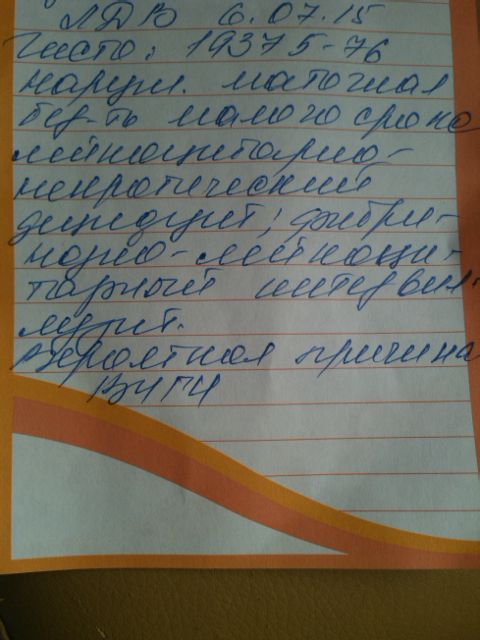 ЛДВ 6.07.15
Гисто: 19375-76
наруш. маточная
бер-ть малого срока
лейкоцитарно-
некротический
децидуит; фибри-
нозно-лейкоци-
тарный интервил-
лузит.
Вероятная причина
ВЧГИ